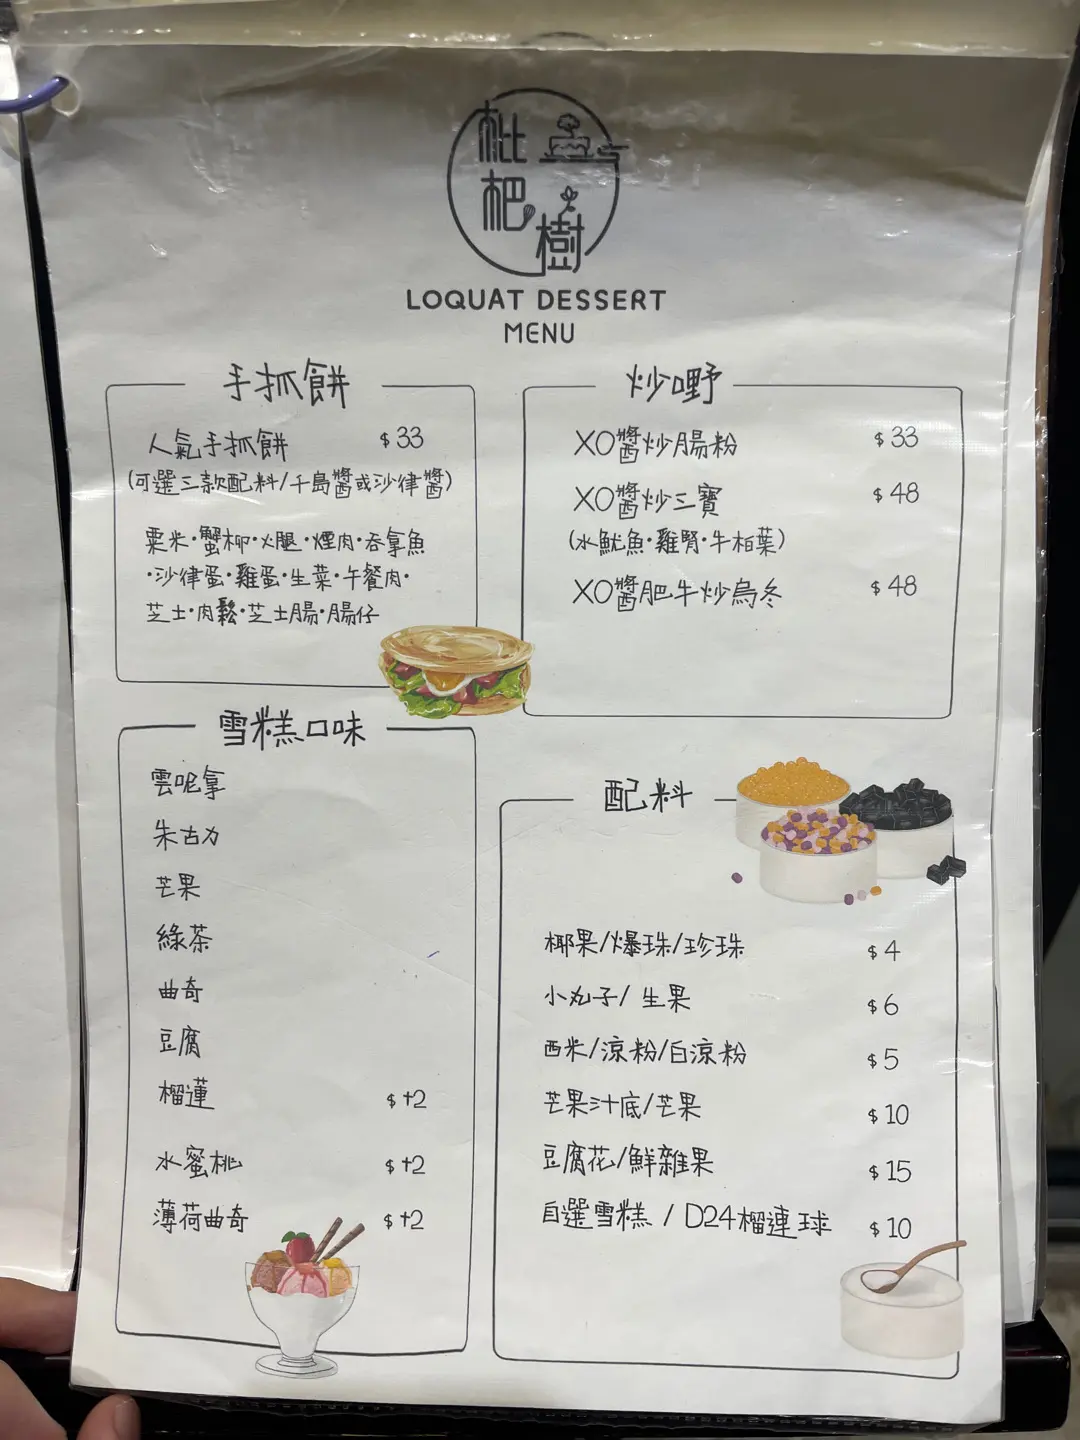 枇杷樹
LOQUAT DESSERT
MENU
手抓餅
人氣手抓餅 $33
(可選三款配料/千島醬或沙律醬)
粟米·蟹柳·火腿·煙肉·吞拿魚
·沙律蛋·雞蛋·生菜·午餐肉·
芝士·肉鬆·芝士腸·腸仔
炒嘢
XO醬炒腸粉 $33
XO醬炒三寶 $48
(水魷魚·雞腎·牛柏葉)
XO醬肥牛炒烏冬 $48
雪糕口味
雲呢拿
朱古力
芒果
綠茶
曲奇
豆腐
榴蓮 $+2
水蜜桃 $+2
薄荷曲奇 $+2
配料
椰果/爆珠/珍珠 $4
小丸子/生果 $6
西米/涼粉/白涼粉 $5
芒果汁底/芒果 $10
豆腐花/鮮雜果 $15
自選雪糕 / D24榴連球 $10